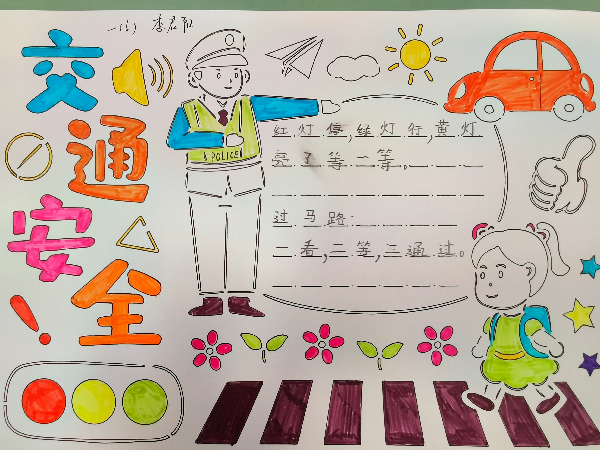 李君
交通安全
POLICE
红灯停,绿灯行,黄灯
亮了等一等。
过马路:
一看,二等,三通过。